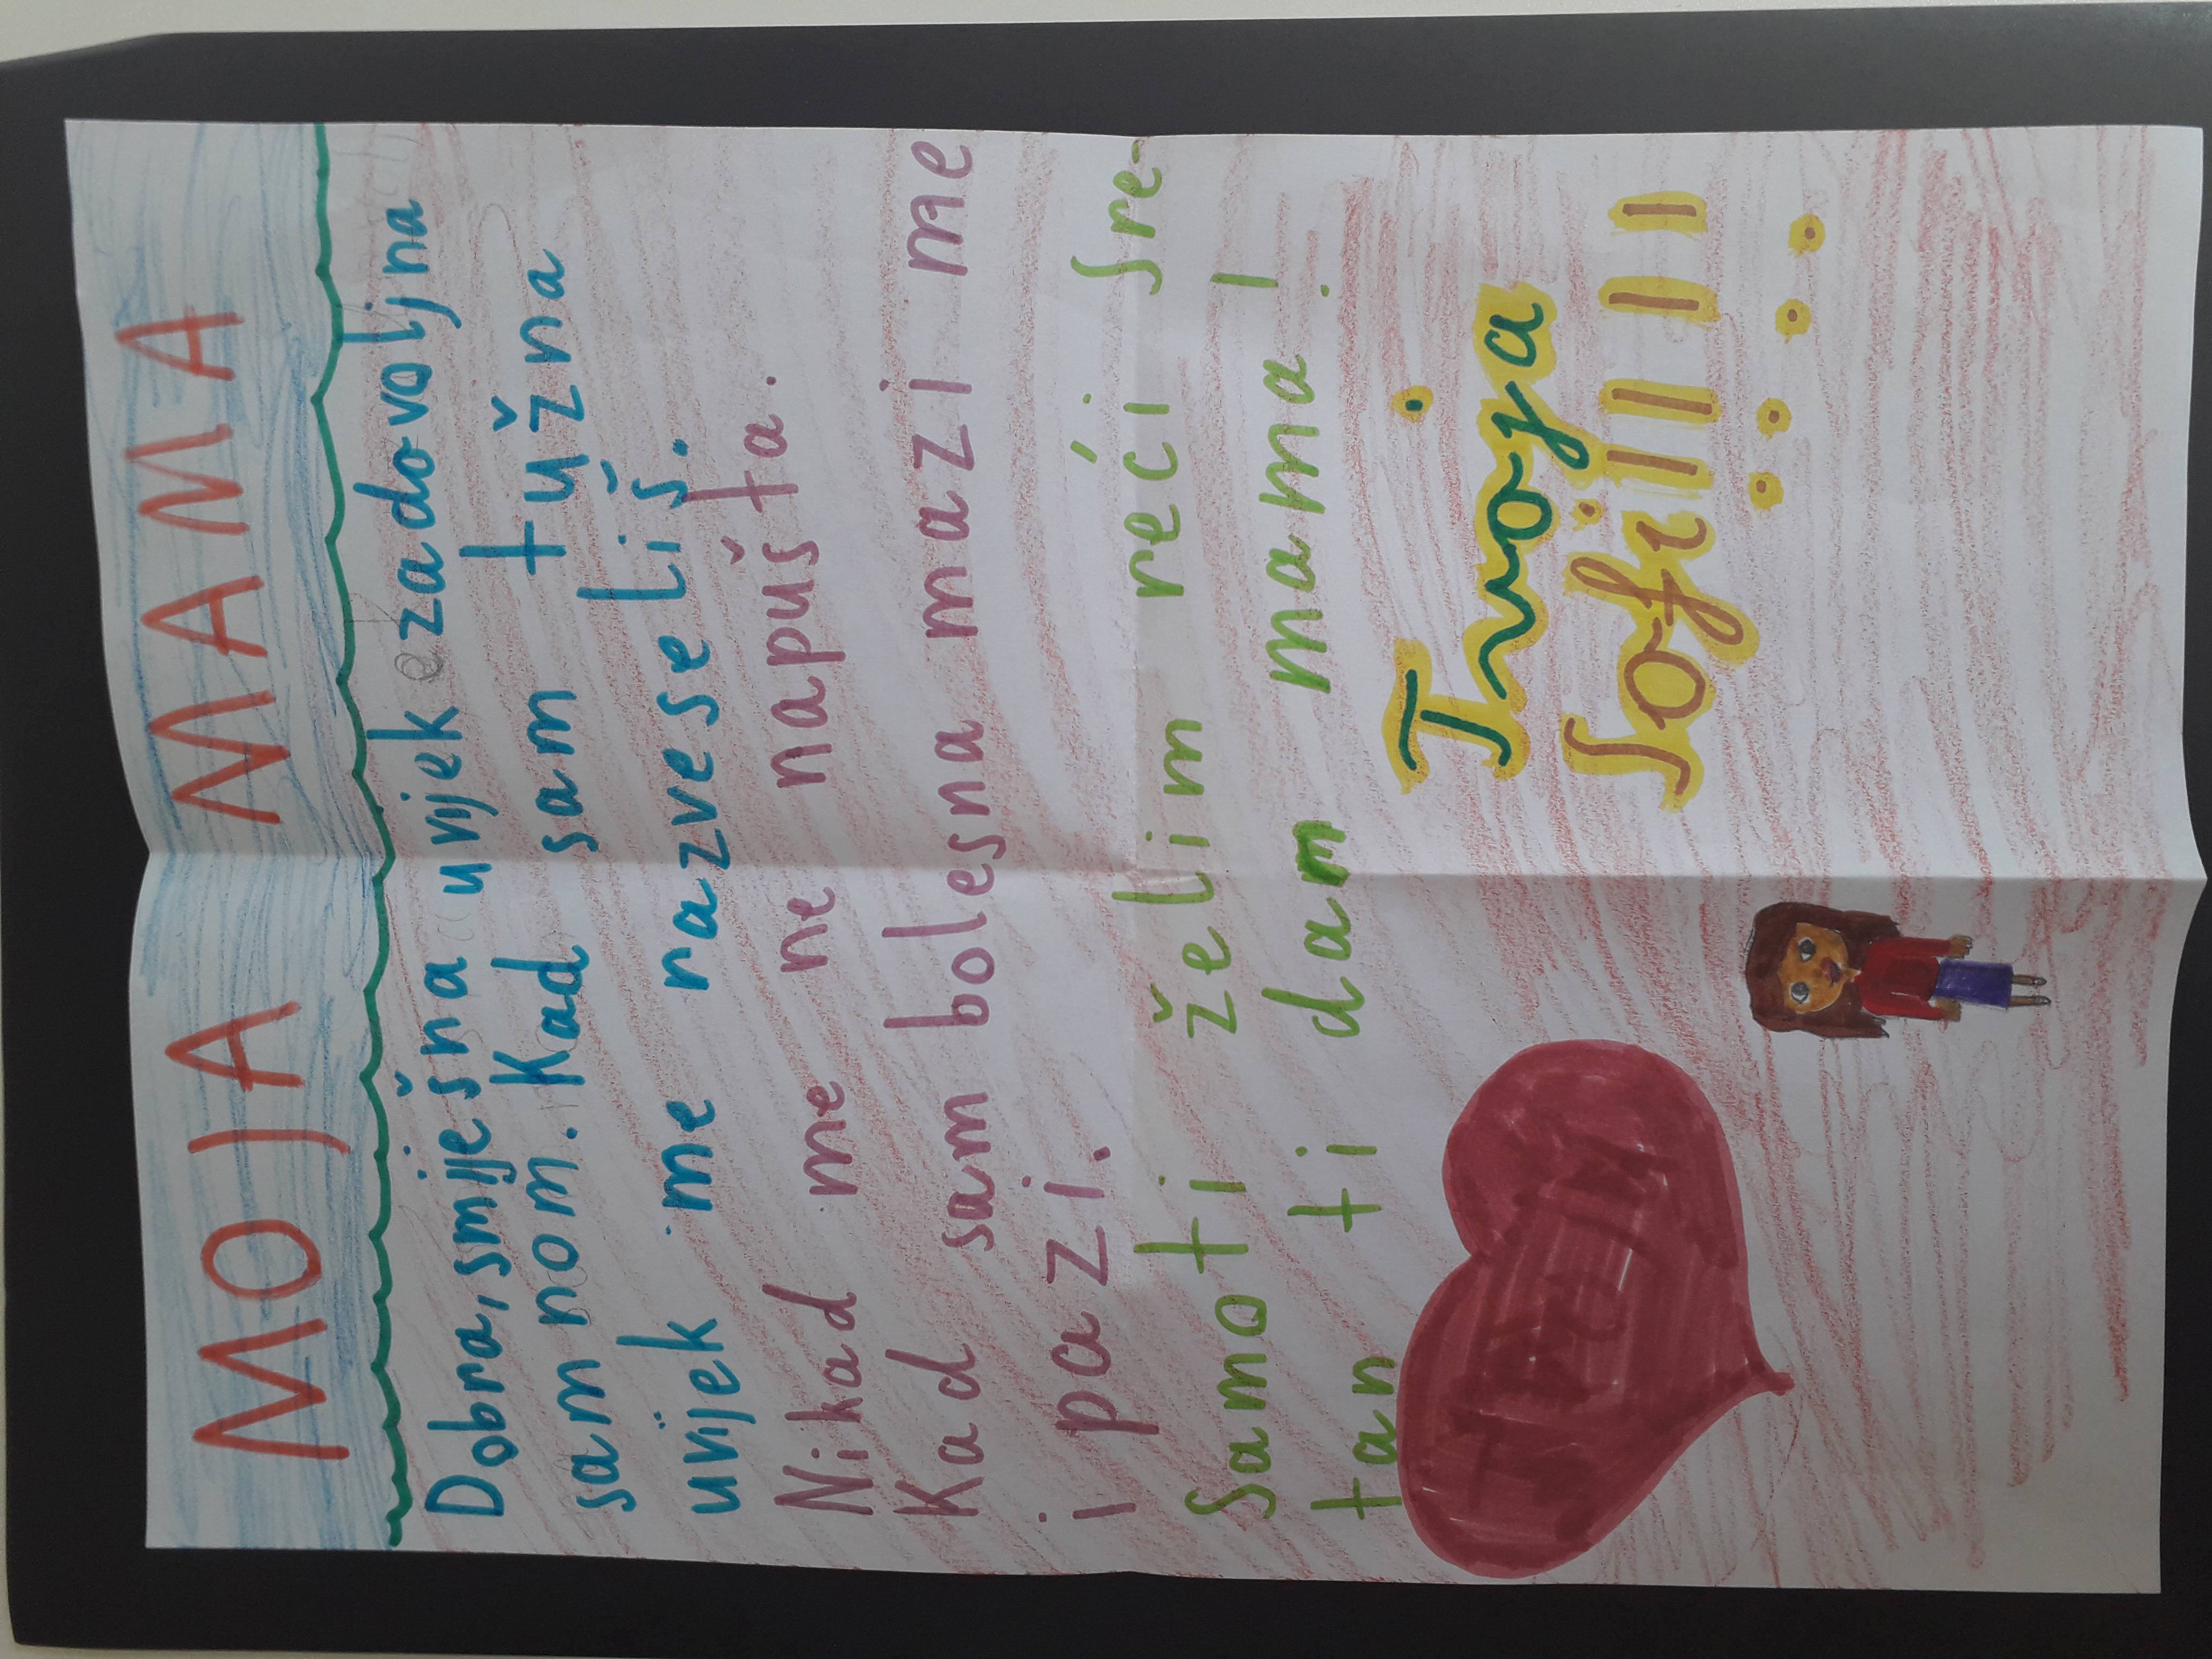 MOJA MAMA
Dobra, smiješna uvijek zadovoljna
sam nom. Kad sam tužna
uvijek me razveseliš.
Nikad me ne napušta.
Kad sam bolesna mazi me
i pazi.
Samo ti želim reći Sre-
tan ti dam mama!
Tvoja
Sofi!!!!